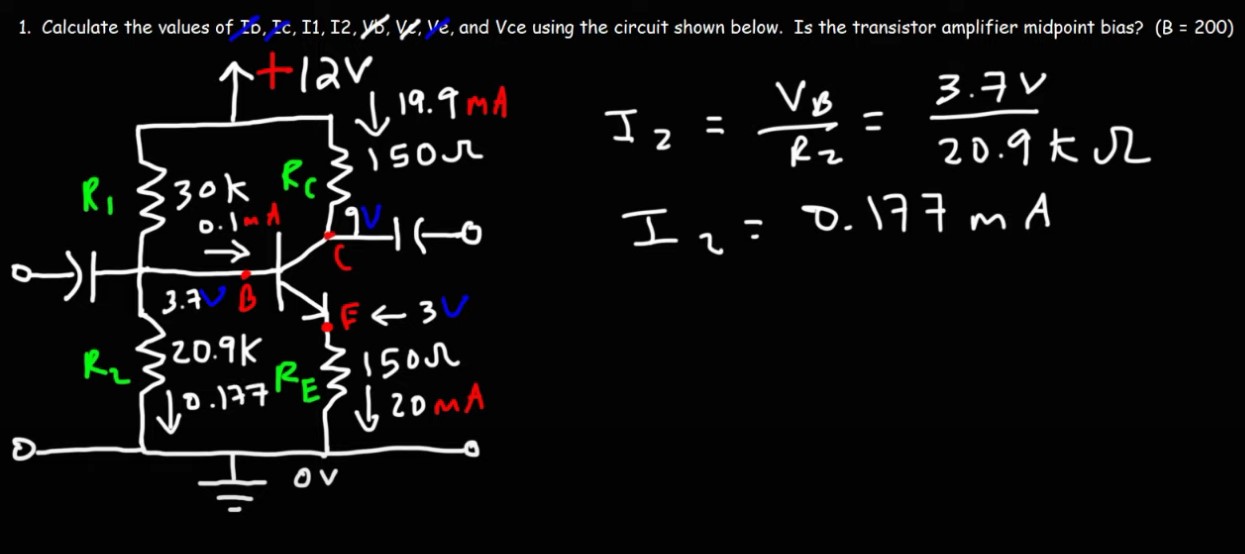 1. Calculate the values of Ib, Ic, I1, I2, Vb, Vc, Ve, and Vce using the circuit shown below. Is the transistor amplifier midpoint bias? (B = 200)
+12V
19.9 mA
150Ω
R1
30k
RC
0.1mA
9V
C
3.7V B
E ← 3V
R2
20.9K
150Ω
0.177
RE
20 mA
0V
I2 = VB/R2 = 3.7V/20.9kΩ
I2 = 0.177 mA